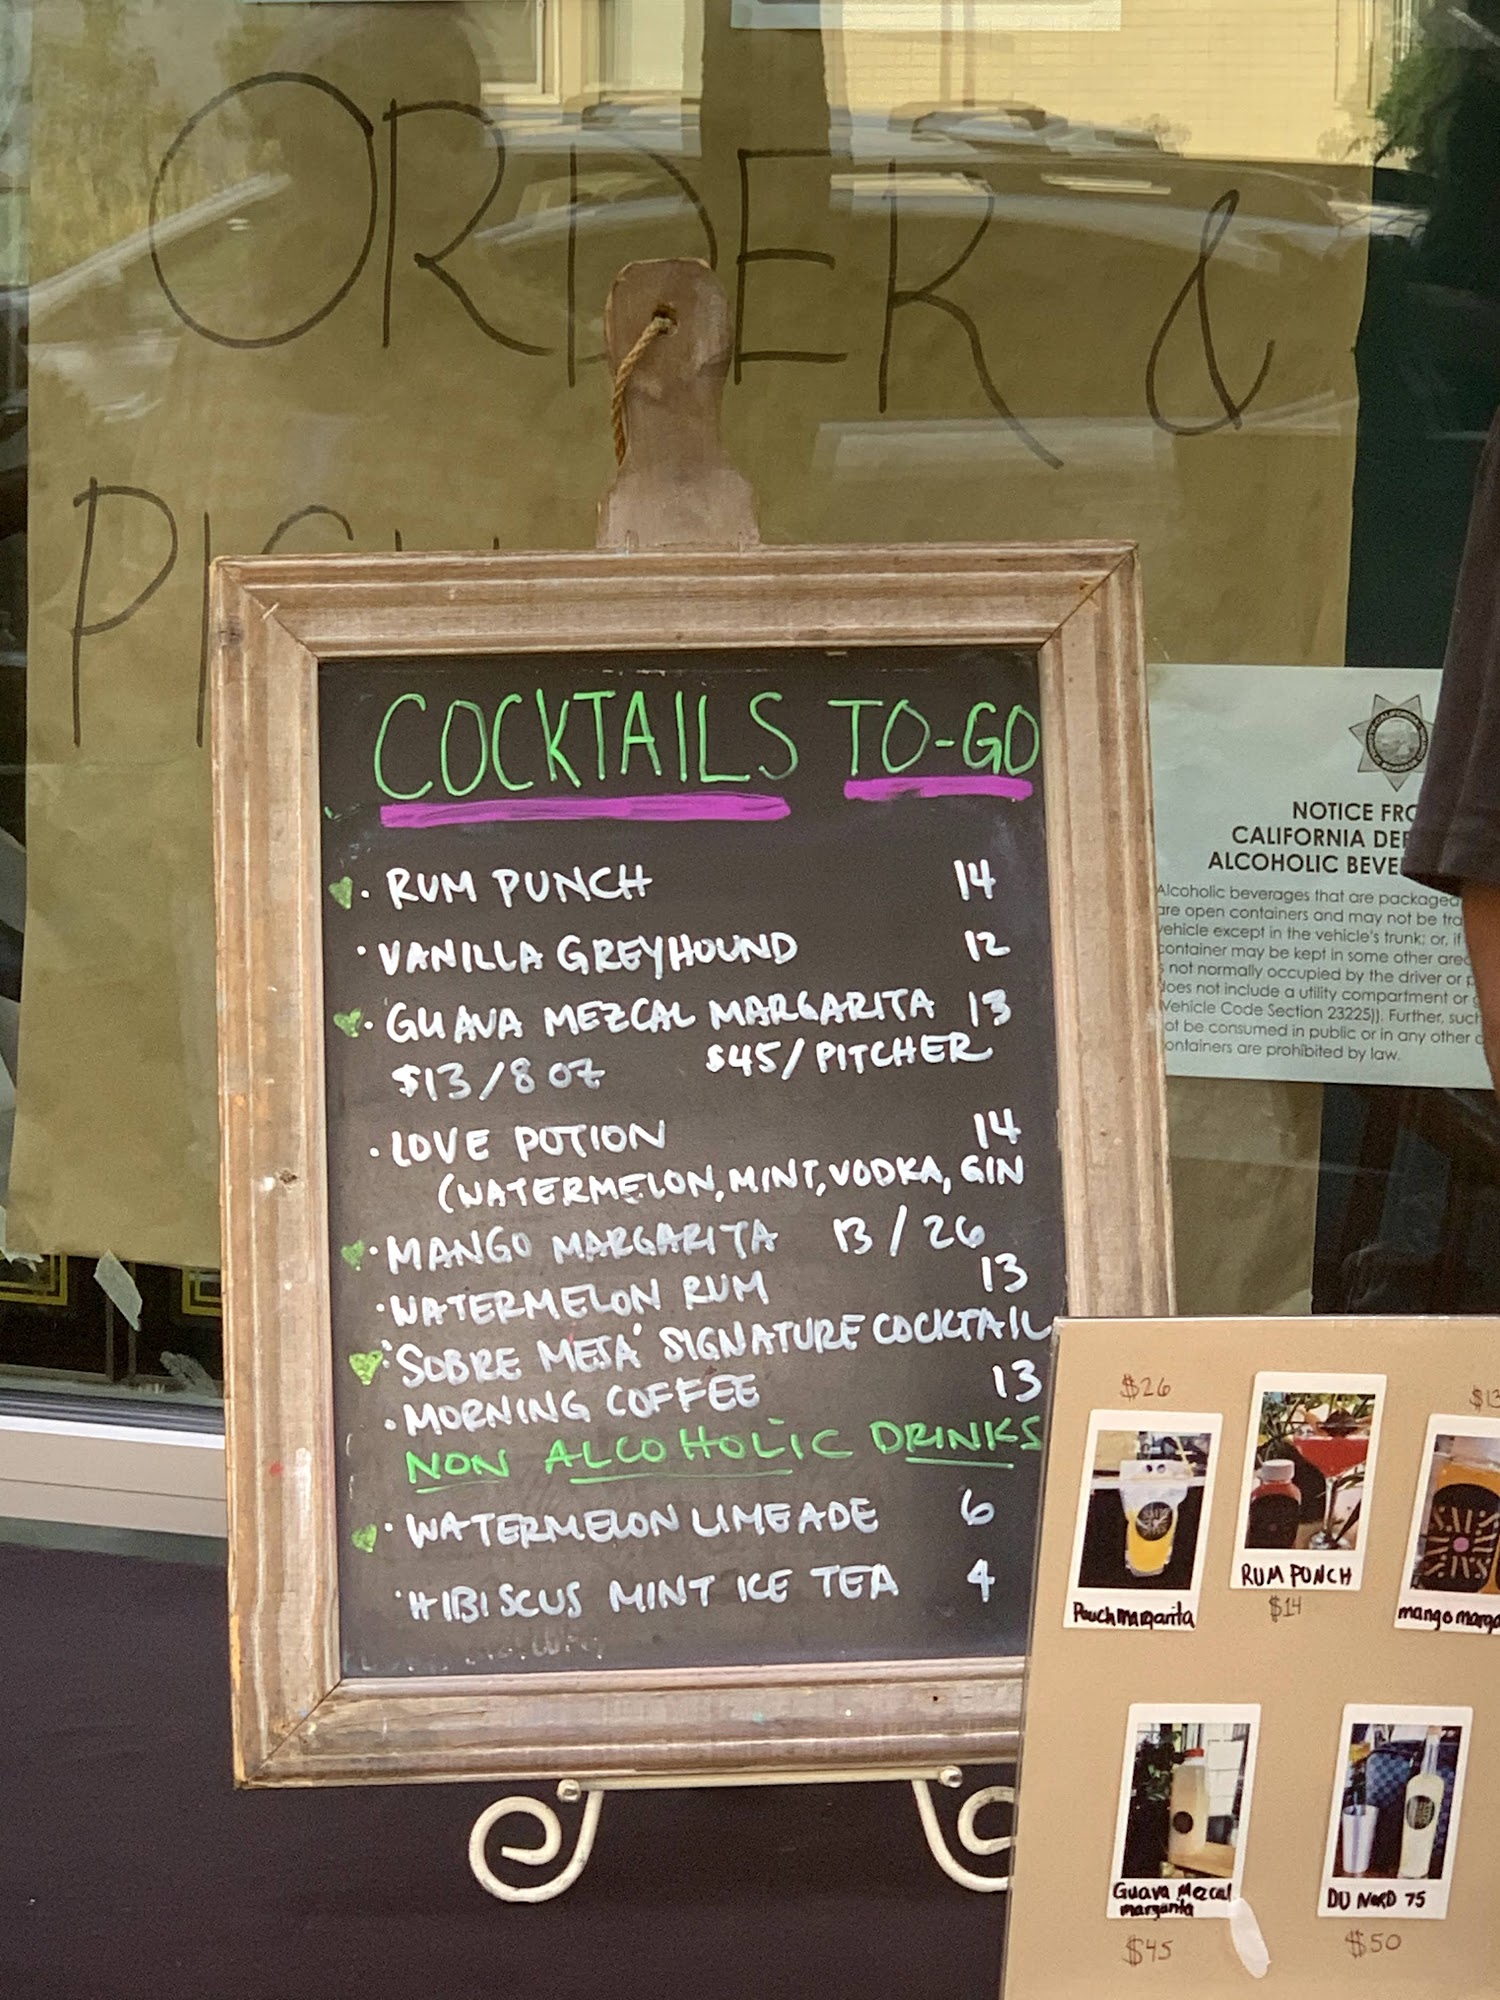 ORDER &
COCKTAILS TO-GO
• RUM PUNCH 14
• VANILLA GREYHOUND 12
• GUAVA MEZCAL MARGARITA 13
$13/8 OZ $45/PITCHER
• LOVE POTION 14
(WATERMELON, MINT, VODKA, GIN
• MANGO MARGARITA 13 / 26
• WATERMELON RUM 13
• 'SOBRE MESA' SIGNATURE COCKTAIL
• MORNING COFFEE 13
NON ALCOHOLIC DRINKS
• WATERMELON LIMEADE 6
• HIBISCUS MINT ICE TEA 4
NOTICE
CALIFORNIA
ALCOHOLIC
Alcoholic beverages that are packaged
are open containers and may not be
vehicle except in the vehicle's trunk; or, if
container may be kept in some other area
not normally occupied by the driver or
does not include a utility compartment or
Vehicle Code Section 23225)). Further, such
not be consumed in public or in any other
containers are prohibited by law.
$26
Pouch margarita
RUM PUNCH
$14
mango
Guava Mezcal
margarita
$45
DU NORD 75
$50